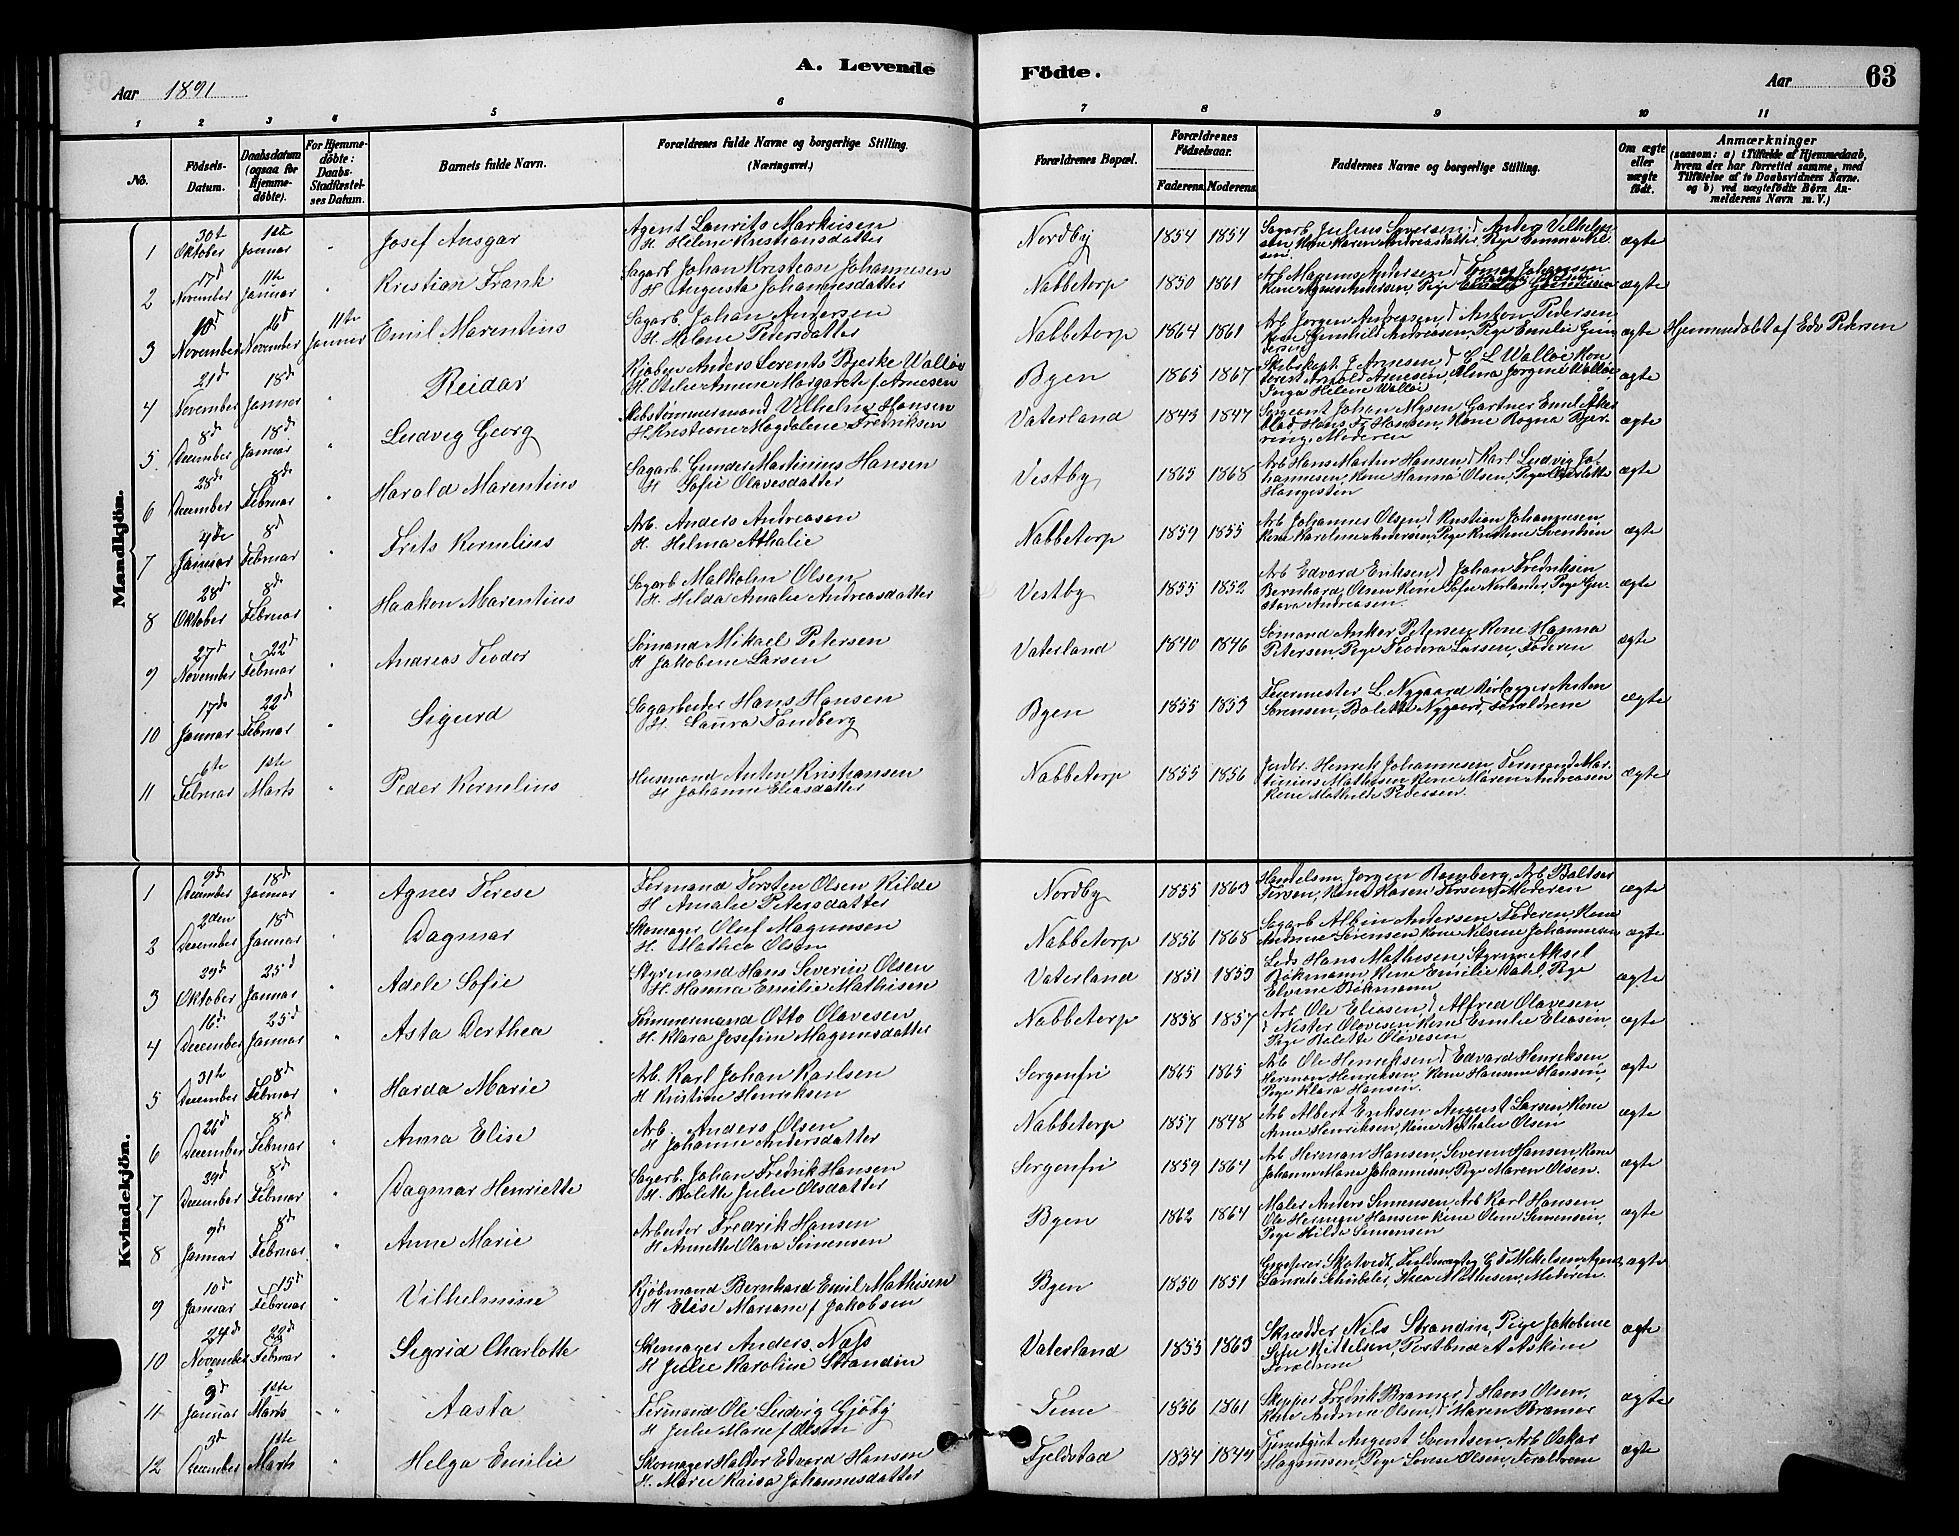 Aar 1891
A. Levende Födte.
Aar 63
1 2 3 4 5 6 7 8 9 10 11
No.
Fødsels-Datum.
Daabsdatum (ogsaa for Hjemme-døbte).
For Hjemme-døbte: Daabs-Stadfæstel-ses Datum.
Barnets fulde Navn.
Forældrenes fulde Navne og borgerlige Stilling. (Næringsvei.)
Forældrenes Bopæl.
Forældrenes Fødselsaar.
Faderens. Moderens.
Faddernes Navne og borgerlige Stilling.
Om ægte eller uægte født.
Anmærkninger (saasom: a) i Tilfælde af Hjemmedaab, hvem der har forrettet samme, med Tilføielse af to Daabsvidners Navne. og b) ved uægtefødte Børn An-melderens Navn m. V.)
Mandkjön.
1 30te Oktober 1ste Januar " Josef Ansgar Agent Laurits Markusen H. Helene Kristiansdatter Nordby 1854 1854 Sagarb. Julius Syversen, Kone Karen Andreasdatter, Pige Emma ægte
2 17d November 11te Januar " Kristian Frank Sagarb. Johan Kristian Johannesen H. Augusta Johannesdatter Nabbetorp 1850 1861 Arb. Magnus Andersen Kone Agnes Andersen, Pige ægte
3 10d November 16d November 11te Januar Emil Marentius Sagarb. Johan Andersen H. Helene Petersdatter Nabbetorp 1864 1861 Arb. Jørgen Andersen, Anton Pedersen Kone Gunhild Andreasen, Pige Emilie Gundersen ægte Hjemmedøbt af Edv. Petersen
4 21d November 18d Januar " Reidar Kjøbm. Anders Lorents Bjerke Walløe H. Otelie Amine Margarete f Arnesen Byen 1865 1867 Skibskapt. F Arnesen, C L Walløe Kontorist Arnold Arnesen, Alma Jørgine Walløe Inga Helene Walløe ægte
5 8d December 18d Januar " Ludvig Georg Skibstømmermand Vilhelm Hansen H. Kristiane Magdalene Fredriksen Vaterland 1843 1847 Sergeant Johan Mysen, Gartner Emil Hans Fr Hansen, Kone Ragna Bjerring, Moderen ægte
6 28de December 8d Februar " Harald Marentius Sagarb. Gunder Martinius Hansen H. Sofie Olavesdatter Vestby 1865 1868 Arb. Hans Martin Hansen, Karl Ludvig Johannesen, Kone Hanna Olsen, Pige Charlotte Haugesten ægte
7 4de Januar 8d Februar " Frits Kornelius Arb. Anders Andreasen H. Helma Athalie Nabbetorp 1859 1855 Arb. Johannes Olsen, Kristian Johannesen, Kone Karoline Andersen, Pige Kristine Svendsen ægte
8 28d Oktober 8d Februar " Haakon Marentius Sagarb. Malkolm Olsen H. Hilda Amalie Andreasdatter Vestby 1855 1852 Arb Edvard Eriksen, Johan Fredriksen Bernhard Olsen Kone Sofie Nerlander, Pige Gustava Andreasen. ægte
9 27d November 22d Februar " Andreas Teodor Sømand Mikael Petersen H. Jakobine Larsen Vaterland 1840 1846 Sømand Anker Petersen Kone Hanna Petersen, Pige Teodora Larsen, Faderen ægte
10 17de Januar 22d Februar " Sigurd Sagarbeider Hans Hansen H. Laura Sandberg Byen 1855 1853 Feiermester L. Nygaard Anton Sørensen, Bolette Nygaard, Forældrene ægte
11 6te Februar 1ste Marts " Peder Kornelius Husmand Anton Kristiansen H. Johanne Eliasdatter Nabbetorp 1855 1856 Jordbr. Henrik Johannesen, Martinius Mathisen Kone Maren Andreasen Kone Mathilde Pedersen. ægte
Kvindekjön.
1 9d December 18d Januar " Agnes Terese Formand Torsten Olsen Kilde H. Amalie Petersdatter Nordby 1855 1863 Handelsm. Jørgen Ramberg, Arb Baltser Torsen, Kone Karen Torsen, Moderen ægte
2 2den December 18d Januar Dagmar Skomager Oluf Magnussen H. Mathea Olsen Nabbetorp 1856 1868 Sagarb Albin Andersen Faderen, Kone Andrine Sørensen, Kone Nilsine Johannesen ægte
3 29d Oktober 25d Januar " Adele Sofie Styrmand Hans Severin Olsen H. Hanna Emilie Mathisen Vaterland 1851 1853 Lods Hans Mathisen, Styrm Aksel Bøkmann, Kone Emilie Dahl, Pige Elvine Bøkmann ægte
4 16d December 25d Januar " Asta Dorthea Tømmermand Otto Olavesen H. Klara Josefine Magnusdatter Nabbetorp 1858 1857 Arb Ole Eliasen, Alfred Olavesen Nester Olavesen Kone Emilie Eliasen, Pige Bolette Olavesen ægte
5 31te December 8d Februar " Harda Marie Arb. Karl Johan Karlsen H Kristine Henriksen Sorgenfri 1865 1865 Arb Ole Henriksen, Edvard Henriksen Herman Henriksen, Kone Hanna Hansen, Pige Klara Hansen. ægte
6 26d December 8d Februar " Anna Elise Arb. Anders Olsen H Johanne Andersdatter Nabbetorp 1857 1848 Arb Albert Eriksen August Larsen, Kone Anne Henriksen, Kone Nathalie Olsen ægte
7 29d December 8d Februar " Dagmar Henriette Sagarb. Johan Fredrik Hansen H. Bolette Julie Olsdatter Sorgenfri 1859 1864 Arb Herman Hansen, Severin Hansen, Kone Johanne Marie Johannesen, Pige Maren Olsen. ægte
8 9d Januar 8d Februar " Anne Marie Arbeider Fredrik Hansen H Annette Olava Simensen Byen 1862 1864 Maler Anders Simensen, Arb Karl Hansen Ole Herman Hansen Kone Oline Simensen, Pige Hilda Simensen ægte
9 10d Januar 15d Februar " Vilhelmine Kjøbmand Bernhard Emil Mathisen H Elise Mariane f Jakobsen Byen 1850 1851 Skotvedt, Mikkelsen, Agent Laurits Thea Mathisen, Moderen ægte
10 24d November 22d Februar " Sigrid Charlotte Skomager Anders Næss H Julie Karoline Strandin Vaterland 1855 1863 Skrædder Nils Strandin, Pige Jakobine Sofie Kittelsen, Postbud A Askim Forældrene ægte
11 9d Januar 1ste Marts " Aasta Formand Ole Ludvig Gjøby H Julie Marie f Olsen Tune 1856 1861 Skipper Fredrik Bramer, Hans Olsen, Kone Andrine Olsen, Maren Bramer ægte
12 3d December 1ste Marts Helga Emilie Skomager Halder Edvard Hansen H. Marie Kaisa Johannesdatter Fjeldstad 1854 1844 Tjenestgut August Svendsen, Arb Oskar Magnussen, Pige Lovise Olsen, Forældrene ægte